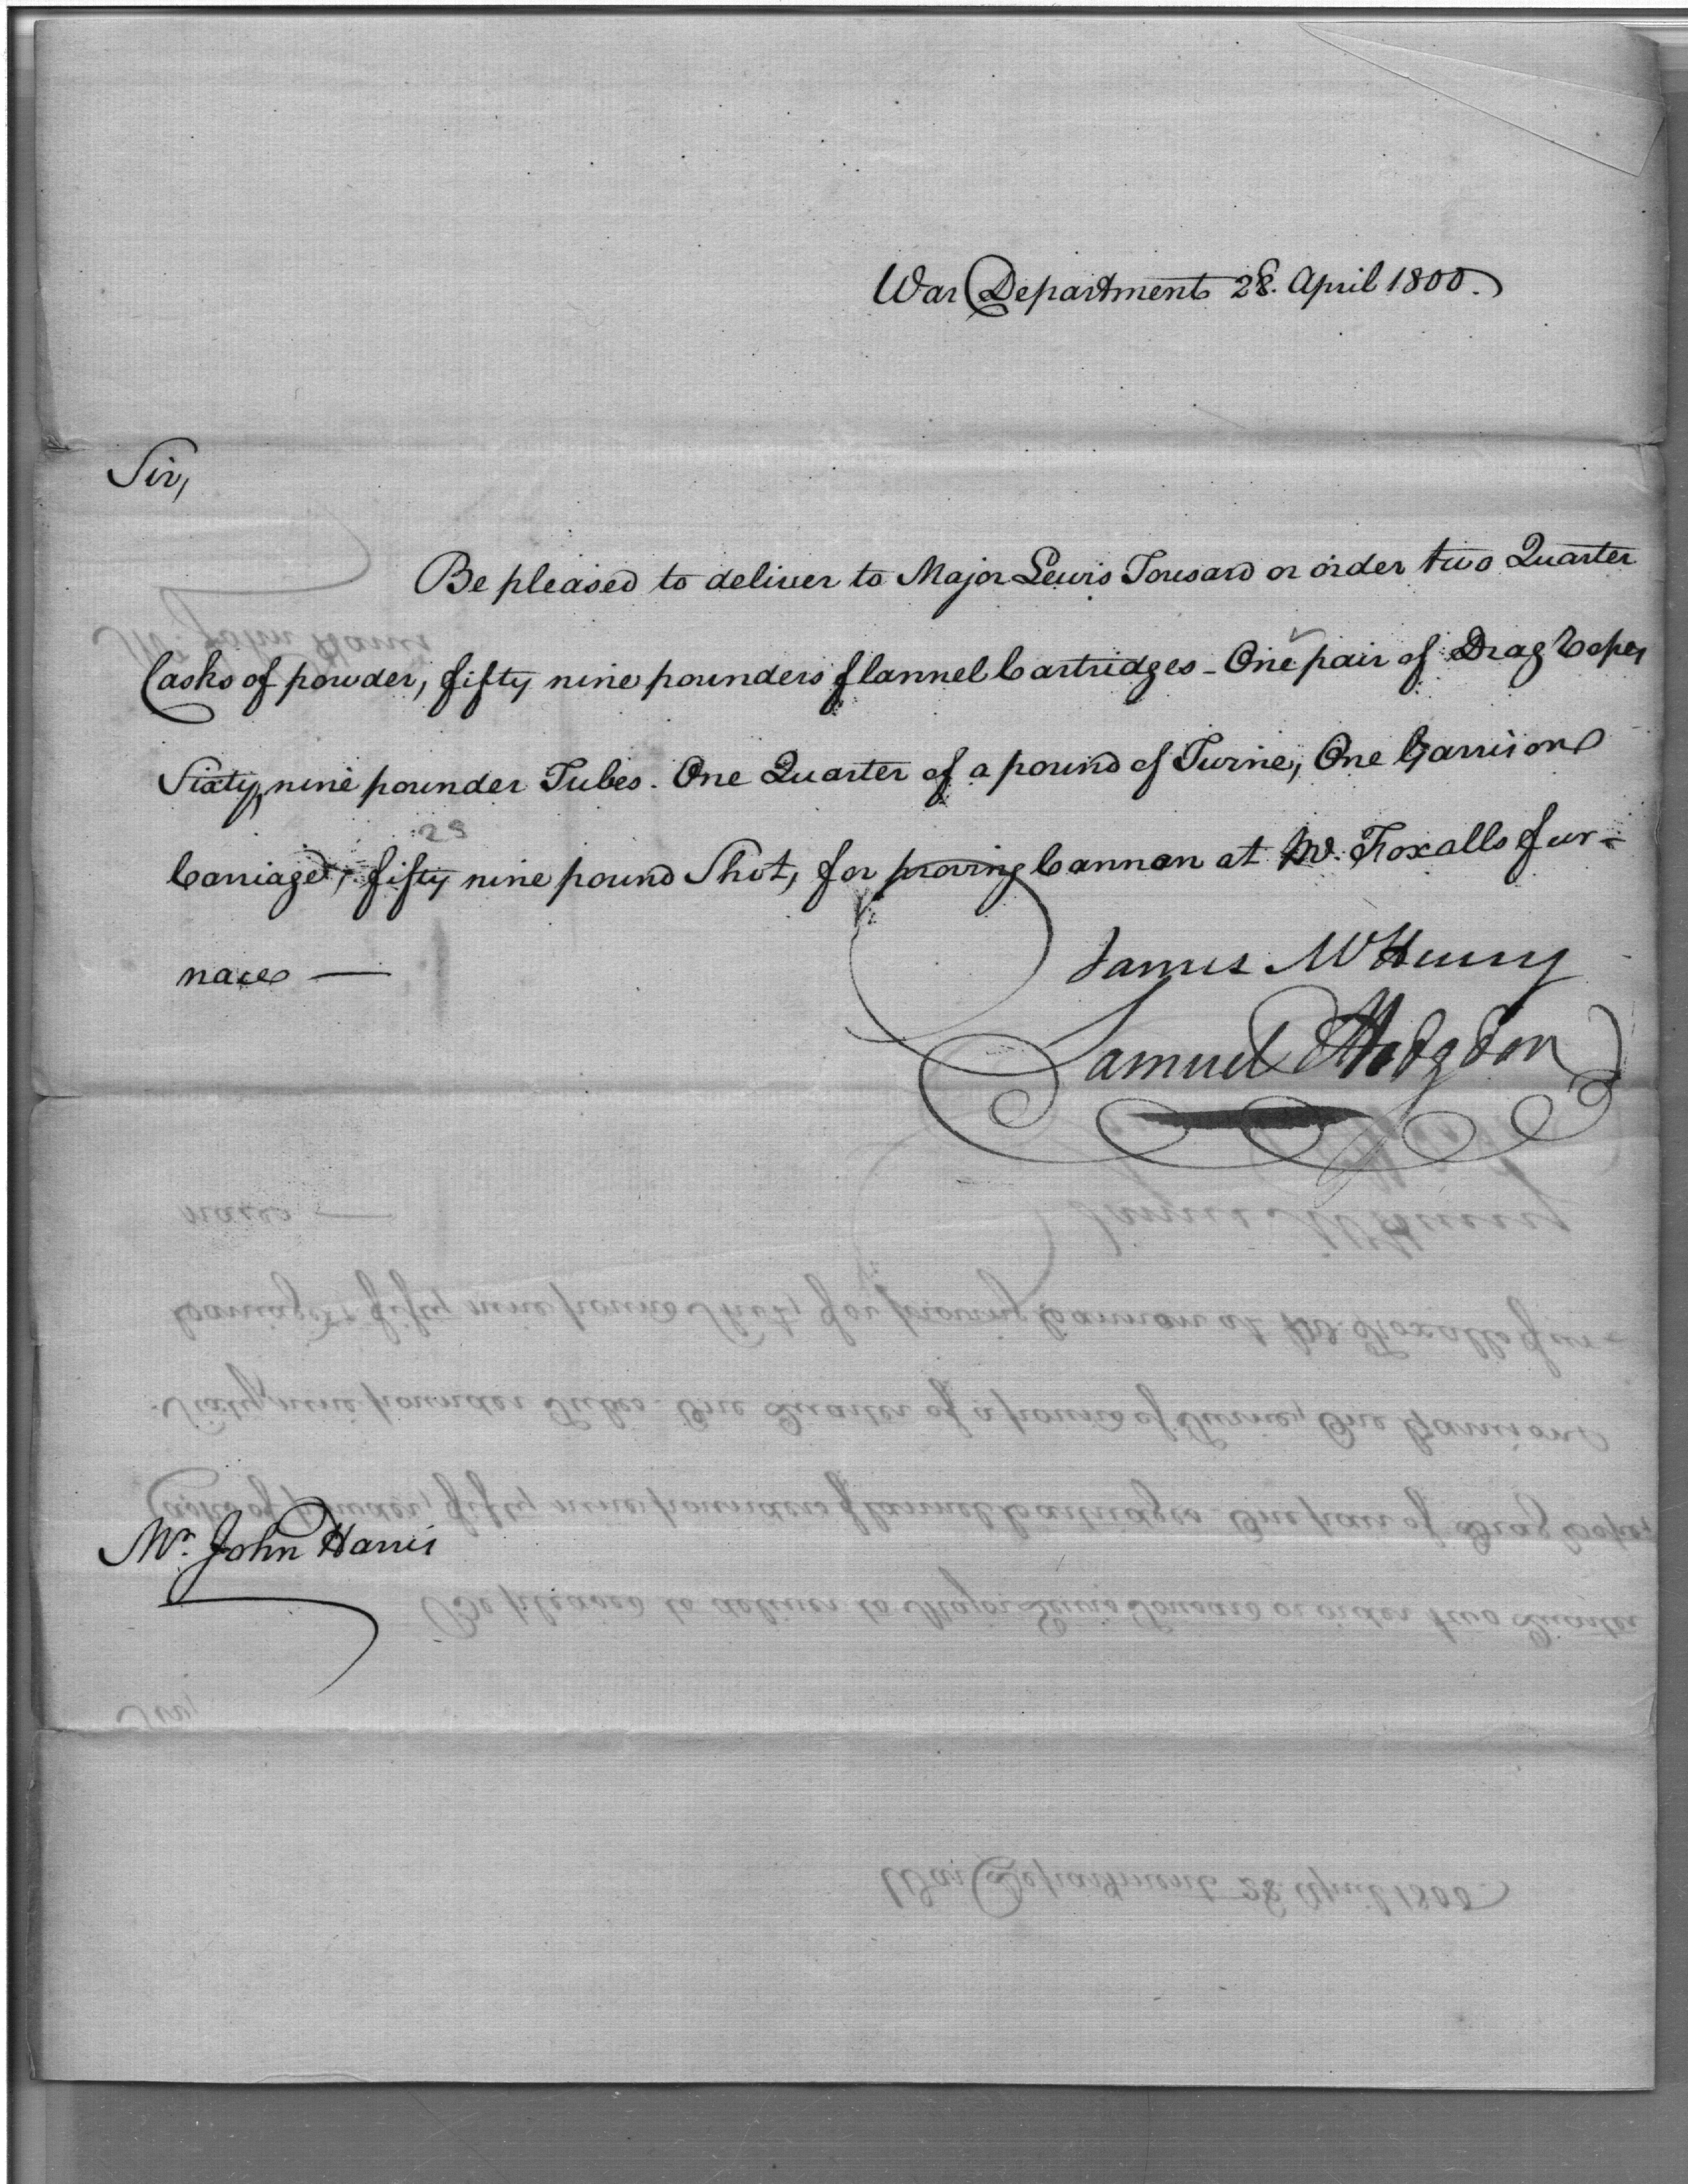 War Department 28. April 1800.
Sir,
Be pleased to deliver to Major Lewis Tousard or order two Quarter
Casks of powder, fifty nine pounders flannel Cartridges - One pair of Drag Ropes
Sixty, nine pounder Tubes. One Quarter of a pound of Twine, One Garrison
25
Carriage, fifty nine pound Shot, for proving Cannon at Mr. Foxalls fur-
naces —
James McHenry
Samuel Hodgdon
Mr. John Harris